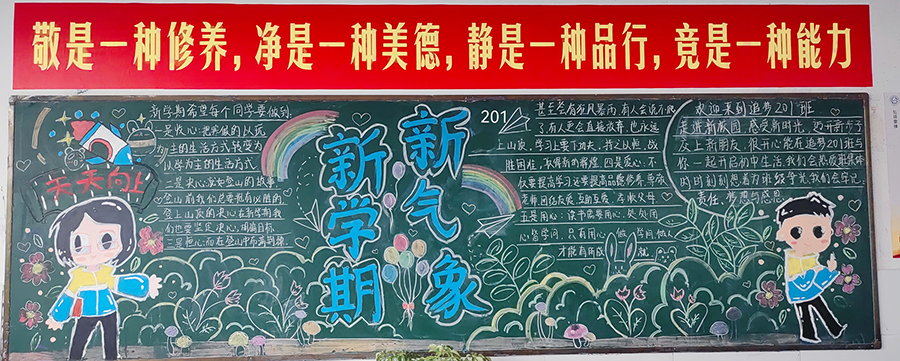 敬是一种修养,净是一种美德,静是一种品行,竞是一种能力
天天向上
新学期希望每个同学要做到
一是收心:把寒假的以玩
为主的生活方式转变为
以学为主的生活方式
二是决心:
登山前我们总要抱有必胜的
登上山顶的决心在新学期我
们也要坚定决心,明确目标
三是恒心:而在登山中
新学期
新气象
201
了,有人更会直接放弃,但永远
上山顶,学习上要下功夫,持之以恒,战
胜困难,取得新的辉煌 四是爱心:不
仅要提高学习还要提高品德修养,尊敬
老师 团结友爱、互助友善、孝敬父母
五是用心:读书需要用心
心做学问,只有用心
才能有所成就
欢迎来到追梦201班
走进新校园,感受新时光,迈开新步子
交上新朋友,很开心能在追梦201班与
你一起开启初中生活,我们会热爱班集体
时时刻刻想着为班级争光,我们会牢记:
责任、梦想与感恩